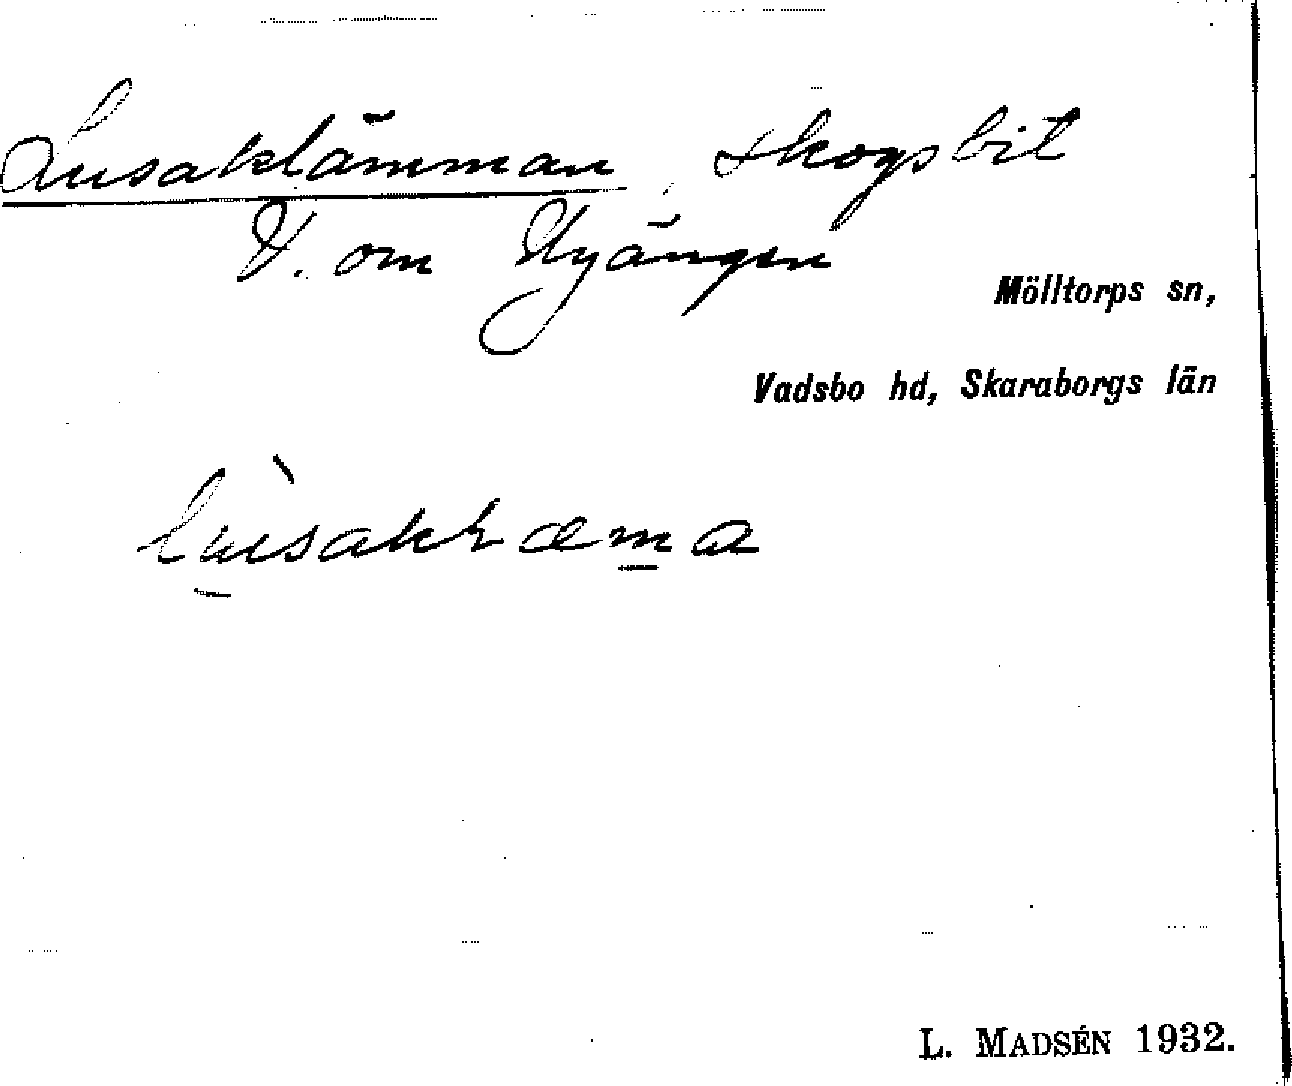 Lusaklämman, skogsbit
V. om Nyängen
Mölltorps sn,
Vadsbo hd, Skaraborgs län
L. MADSÉN 1932.